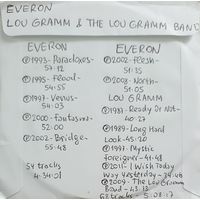 EVERON
LOU GRAMM & THE LOU GRAMM BAND
EVERON
① 1993-Paradoxes-
57:12
② 1995-Flood-
54:55
③ 1997-Venus-
54:03
④ 2000-Fantasma-
52:00
⑤ 2002-Bridge-
55:48
54 tracks
4:34:01
EVERON
① 2002-Flesh-
51:35
② 2008-North-
51:05
LOU GRAMM
① 1987-Ready Or Not-
40:27
② 1989-Long Hard
Look-45:20
③ 1997-Mystic
Foreigner-41:48
④ 2011-I Wish Today
Was Yesterday-34:46
⑤ 2009-The Lou Gramm
Band-43:13
68 tracks 5:08:17